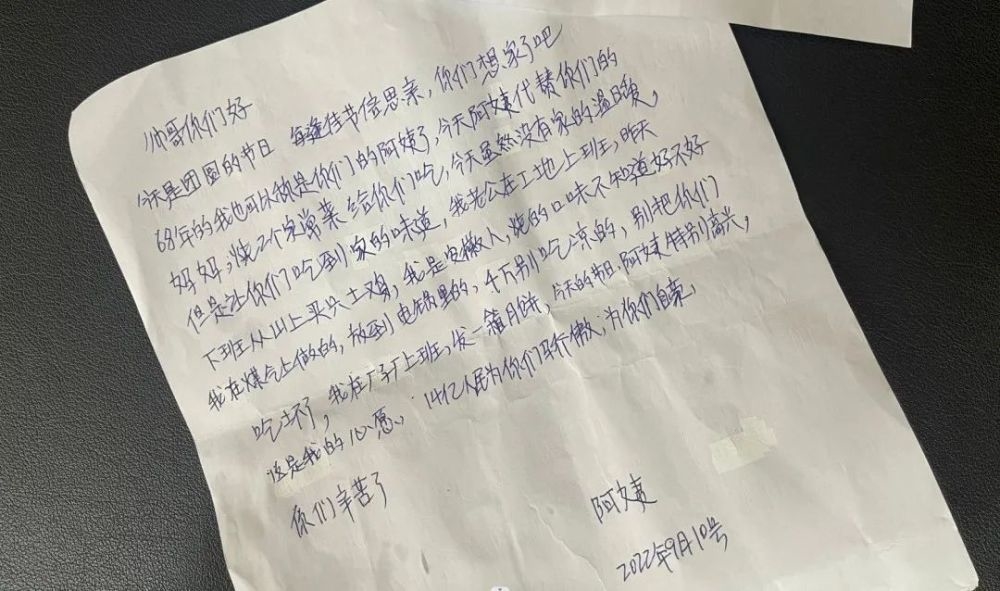 帅哥你们好
今天是团圆的节日 每逢佳节倍思亲，你们想家了吧
68年的我也可以做是你们的阿姨了，今天阿姨代替你们的
妈妈，烧2个家常菜给你们吃，今天虽然没有家的温暖，
但是让你们吃到家的味道，我老公在工地上班，昨天
下班从山上买只土鸡，我是安徽人，烧的口味不知道好不好
我在煤气上做的，放到电锅里的，千万别吃凉的，别把你们
吃坏了，我在厂子上班，发一箱月饼，今天的节日阿姨特别高兴，
这是我的心愿、14亿人民为你们骄傲；为你们自豪，
你们辛苦了
阿姨
2022年9月10号